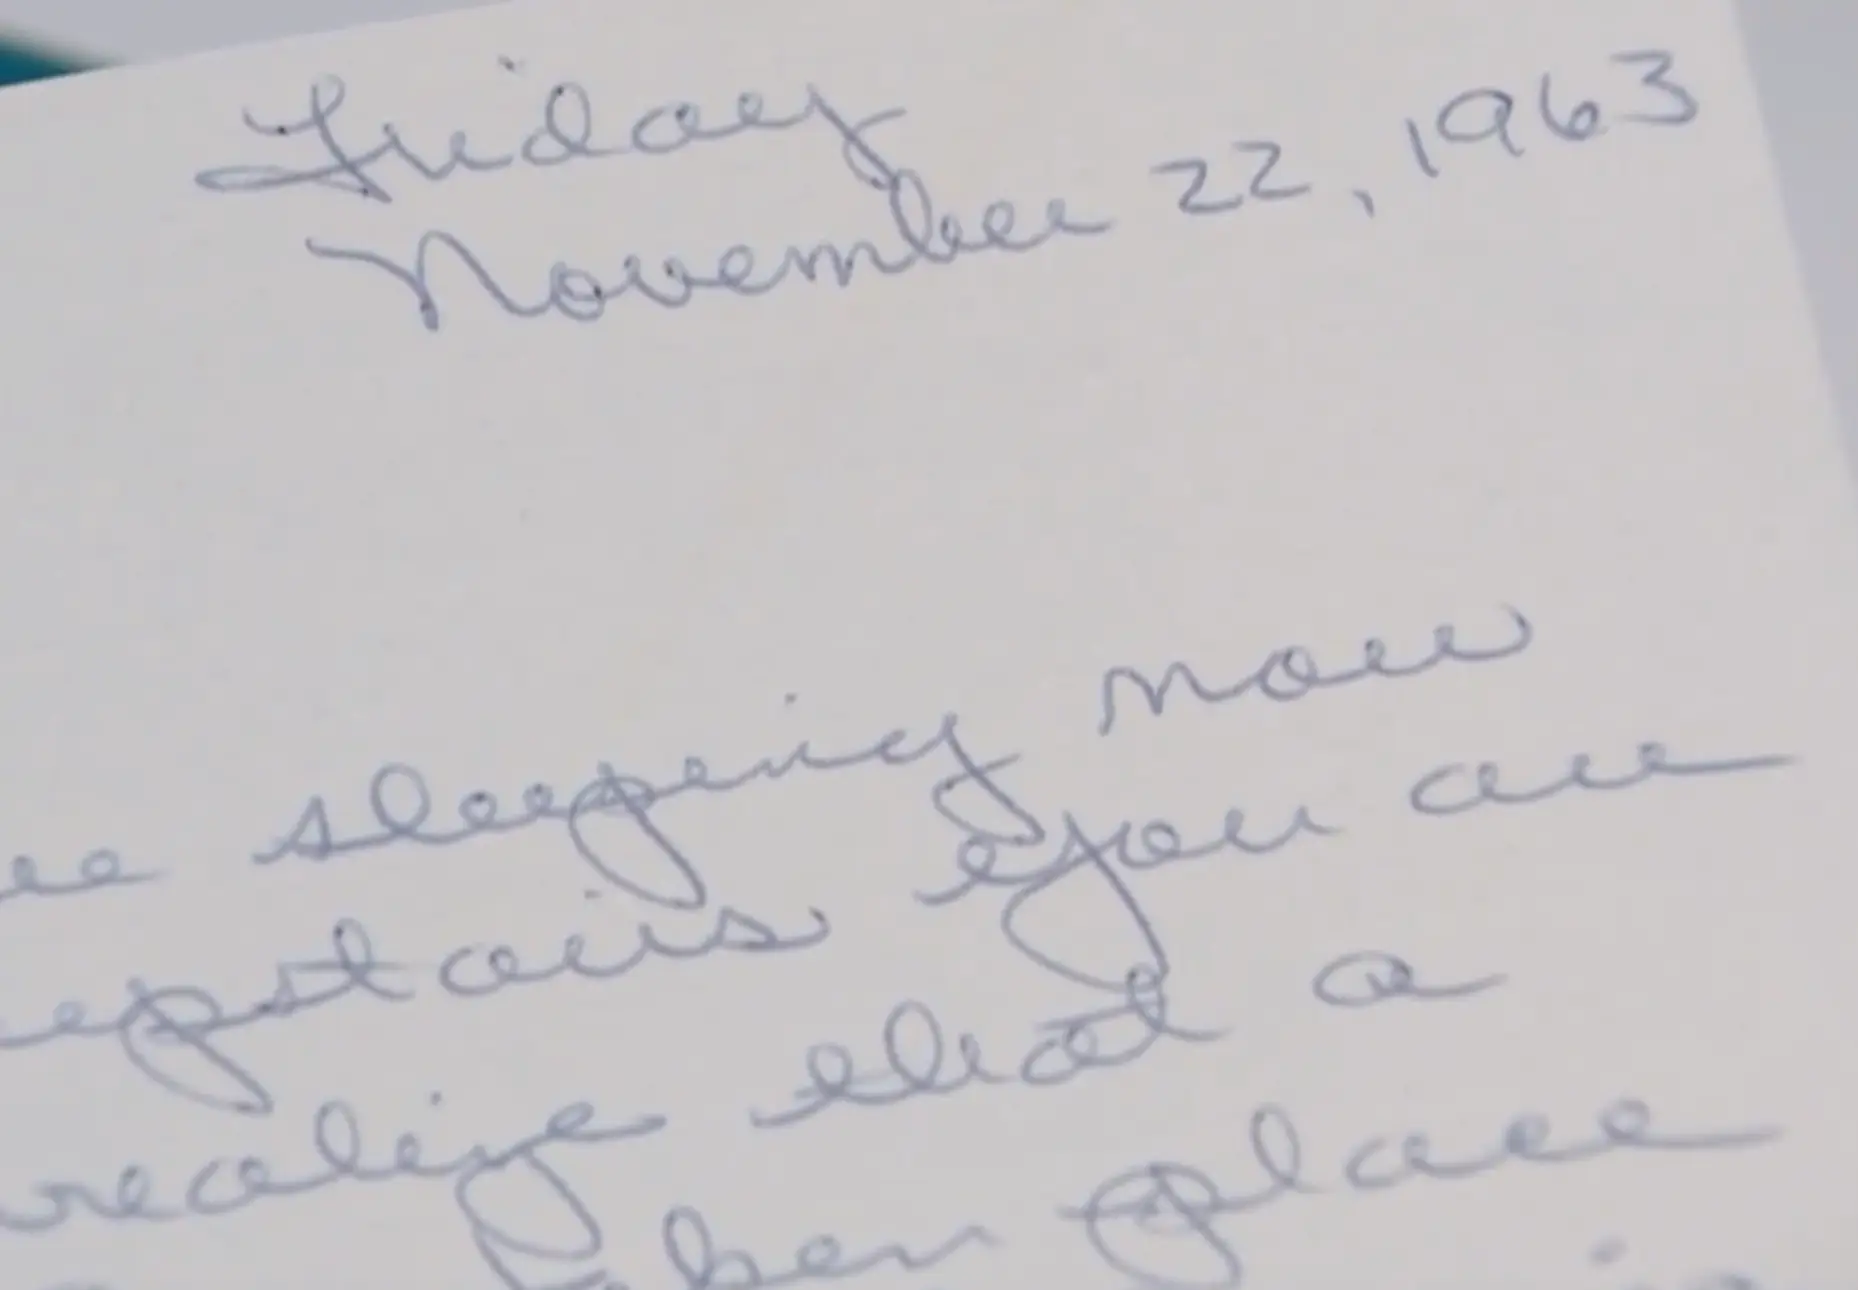 Friday
November 22, 1963
sleeping now
upstairs you are
realize that a
place